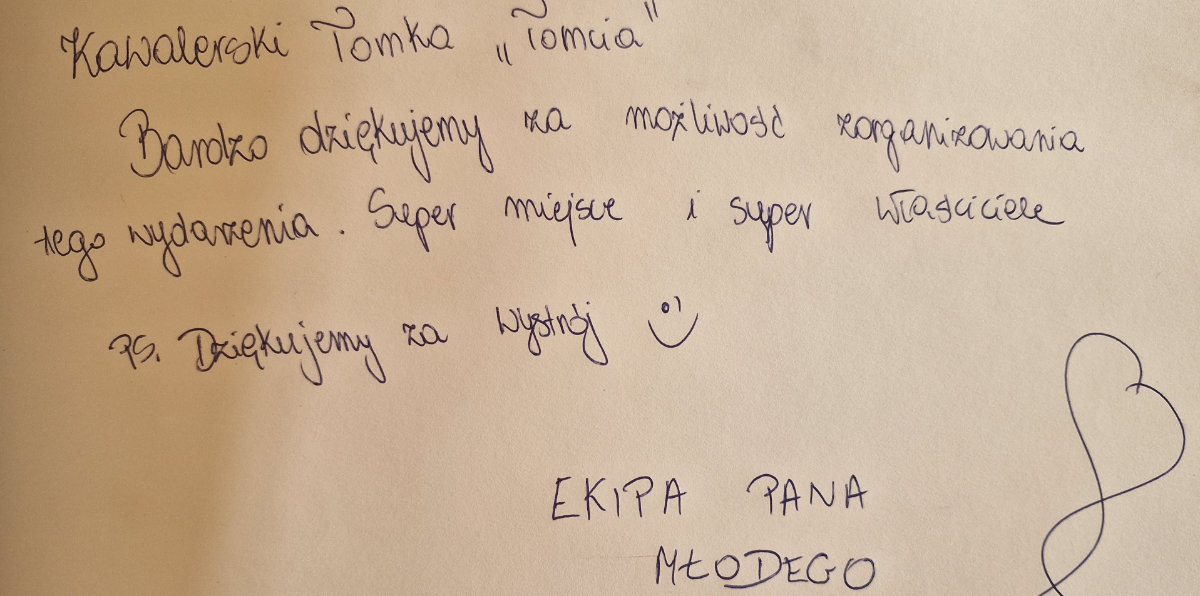 Kawalerski Tomka „Tomcia"
Bardzo dziękujemy za możliwość zorganizowania
tego wydarzenia. Super miejsce i super właściciele
PS. Dziękujemy za wystrój :)
EKIPA PANA
MŁODEGO